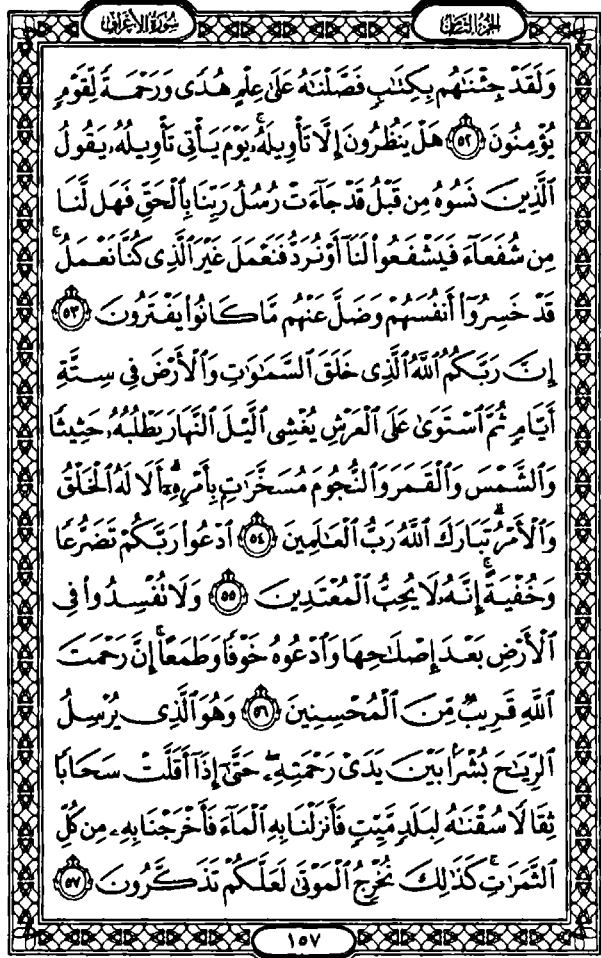 سُورَةُ الأَعْرَافِ
الجُزْءُ الثَّامِنُ
وَلَقَدْ جِئْنَٰهُم بِكِتَٰبٍ فَصَّلْنَٰهُ عَلَىٰ عِلْمٍ هُدًى وَرَحْمَةً لِّقَوْمٍ
يُؤْمِنُونَ ٥٢ هَلْ يَنظُرُونَ إِلَّا تَأْوِيلَهُۥۚ يَوْمَ يَأْتِى تَأْوِيلُهُۥ يَقُولُ
ٱلَّذِينَ نَسُوهُ مِن قَبْلُ قَدْ جَآءَتْ رُسُلُ رَبِّنَا بِٱلْحَقِّ فَهَل لَّنَا
مِن شُفَعَآءَ فَيَشْفَعُوا۟ لَنَآ أَوْ نُرَدُّ فَنَعْمَلَ غَيْرَ ٱلَّذِى كُنَّا نَعْمَلُۚ
قَدْ خَسِرُوٓا۟ أَنفُسَهُمْ وَضَلَّ عَنْهُم مَّا كَانُوا۟ يَفْتَرُونَ ٥٣
إِنَّ رَبَّكُمُ ٱللَّهُ ٱلَّذِى خَلَقَ ٱلسَّمَٰوَٰتِ وَٱلْأَرْضَ فِى سِتَّةِ
أَيَّامٍ ثُمَّ ٱسْتَوَىٰ عَلَى ٱلْعَرْشِ يُغْشِى ٱلَّيْلَ ٱلنَّهَارَ يَطْلُبُهُۥ حَثِيثًا
وَٱلشَّمْسَ وَٱلْقَمَرَ وَٱلنُّجُومَ مُسَخَّرَٰتٍۭ بِأَمْرِهِۦٓۗ أَلَا لَهُ ٱلْخَلْقُ
وَٱلْأَمْرُۗ تَبَارَكَ ٱللَّهُ رَبُّ ٱلْعَٰلَمِينَ ٥٤ ٱدْعُوا۟ رَبَّكُمْ تَضَرُّعًا
وَخُفْيَةًۚ إِنَّهُۥ لَا يُحِبُّ ٱلْمُعْتَدِينَ ٥٥ وَلَا تُفْسِدُوا۟ فِى
ٱلْأَرْضِ بَعْدَ إِصْلَٰحِهَا وَٱدْعُوهُ خَوْفًا وَطَمَعًاۚ إِنَّ رَحْمَتَ
ٱللَّهِ قَرِيبٌ مِّنَ ٱلْمُحْسِنِينَ ٥٦ وَهُوَ ٱلَّذِى يُرْسِلُ
ٱلرِّيَٰحَ بُشْرًۢا بَيْنَ يَدَىْ رَحْمَتِهِۦۖ حَتَّىٰٓ إِذَآ أَقَلَّتْ سَحَابًا
ثِقَالًا سُقْنَٰهُ لِبَلَدٍ مَّيِّتٍ فَأَنزَلْنَا بِهِ ٱلْمَآءَ فَأَخْرَجْنَا بِهِۦ مِن كُلِّ
ٱلثَّمَرَٰتِۚ كَذَٰلِكَ نُخْرِجُ ٱلْمَوْتَىٰ لَعَلَّكُمْ تَذَكَّرُونَ ٥٧
١٥٧